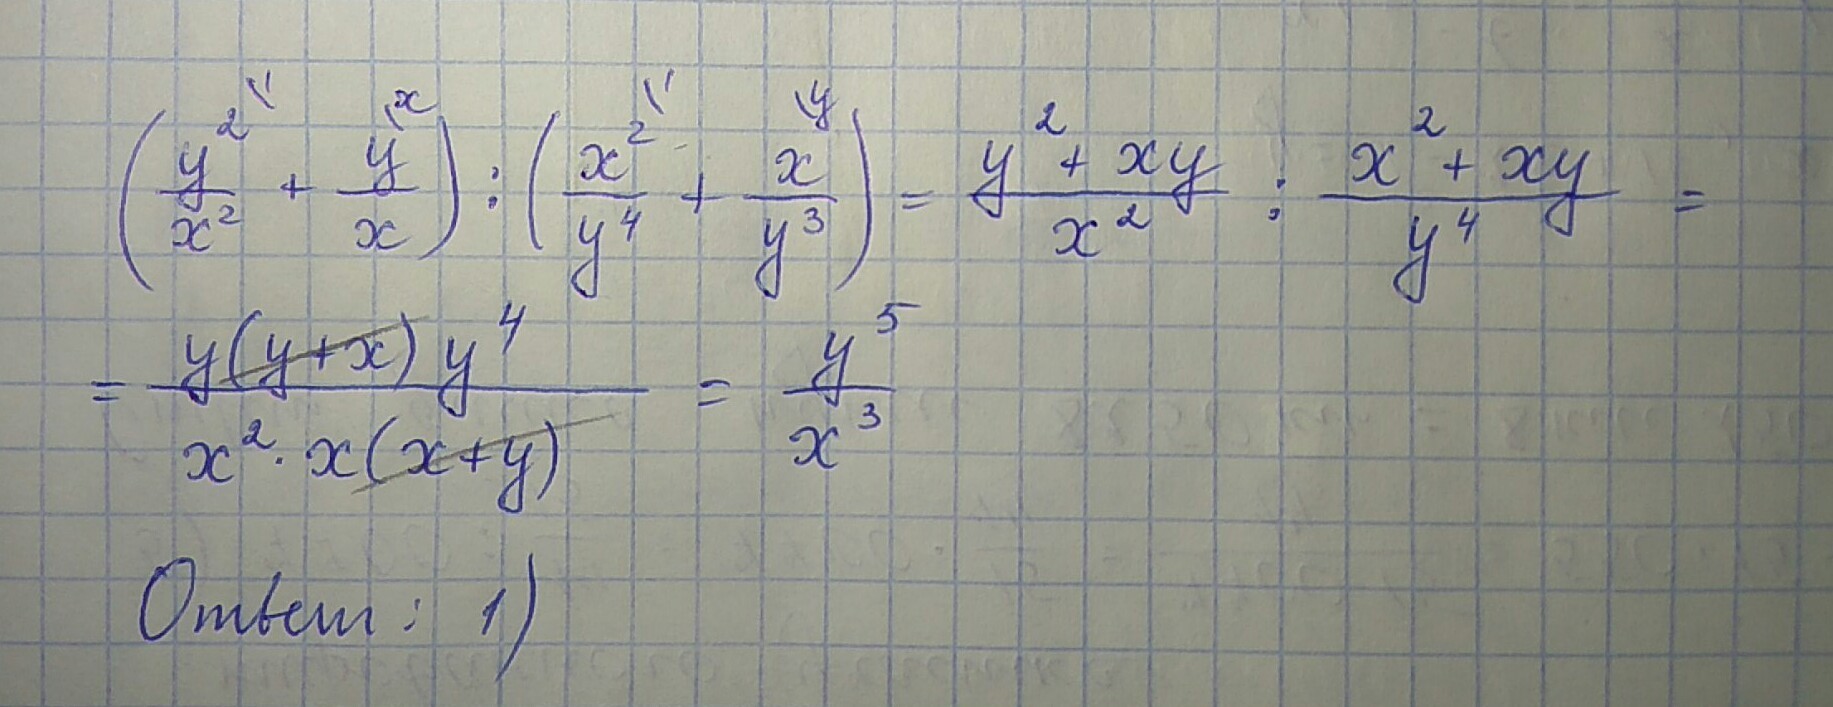 (y²\¹/x² + y\ˣ/x) : (x²\¹/y⁴ + x\ʸ/y³) = (y² + xy)/x² : (x² + xy)/y⁴ =
= y(y+x)y⁴/(x² · x(x+y)) = y⁵/x³
Ответ: 1)